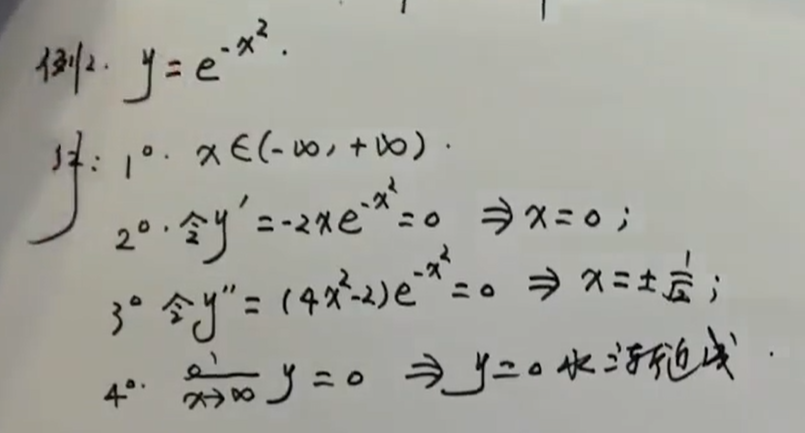 例2. y = e^{-x^2}.
解: 1°. x∈(-∞, +∞).
2°. 令y' = -2xe^{-x^2} = 0 ⇒ x = 0;
3° 令y'' = (4x^2-2)e^{-x^2} = 0 ⇒ x = ±1/√2;
4°. lim_{x→∞} y = 0 ⇒ y = 0 水平渐近线.